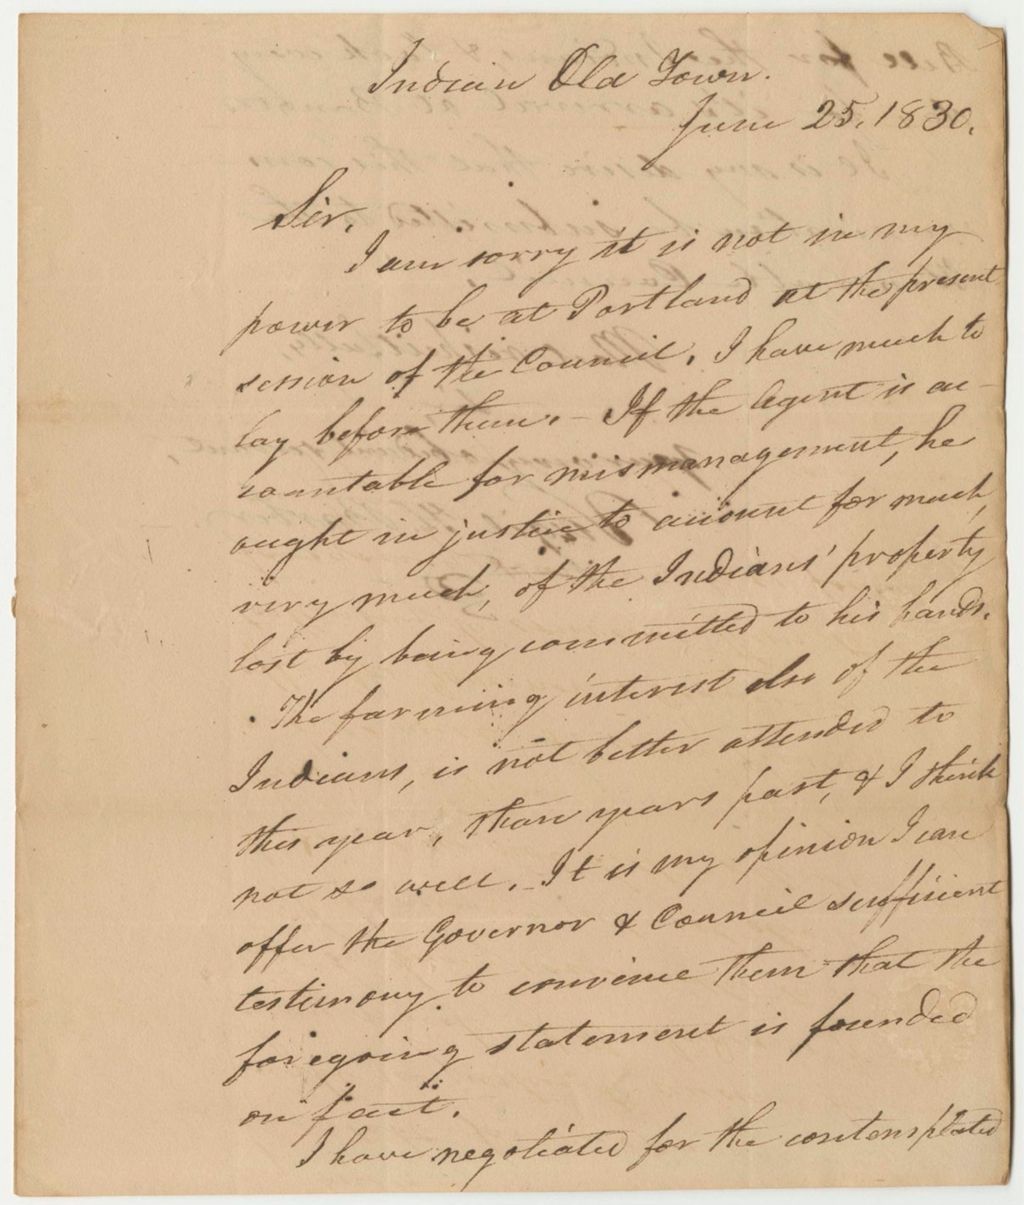 Indian Old Town.
June 25, 1830.
Sir,
I am sorry it is not in my
power to be at Portland at the present
session of the Council. I have much to
lay before them. – If the Agent is ac-
countable for mismanagement, he
ought in justice to account for much,
very much, of the Indians' property
lost by being committed to his hands.
The farming interest also of the
Indians, is not better attended to
this year, than years past, & I think
not so well. – It is my opinion I can
offer the Governor & Council sufficient
testimony to convince them that the
foregoing statement is founded
on fact.
I have negotiated for the contemplated